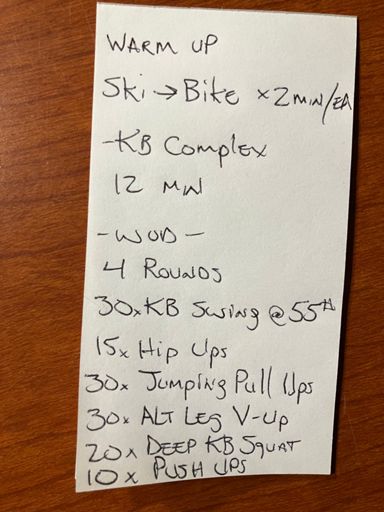 WARM UP
Ski → Bike x 2 MIN/EA
- KB Complex
12 MIN
- WOD -
4 ROUNDS
30x KB Swing @ 55#
15x Hip Ups
30x Jumping Pull Ups
30x ALT Leg V-Up
20x DEEP KB SQUAT
10x PUSH UPS